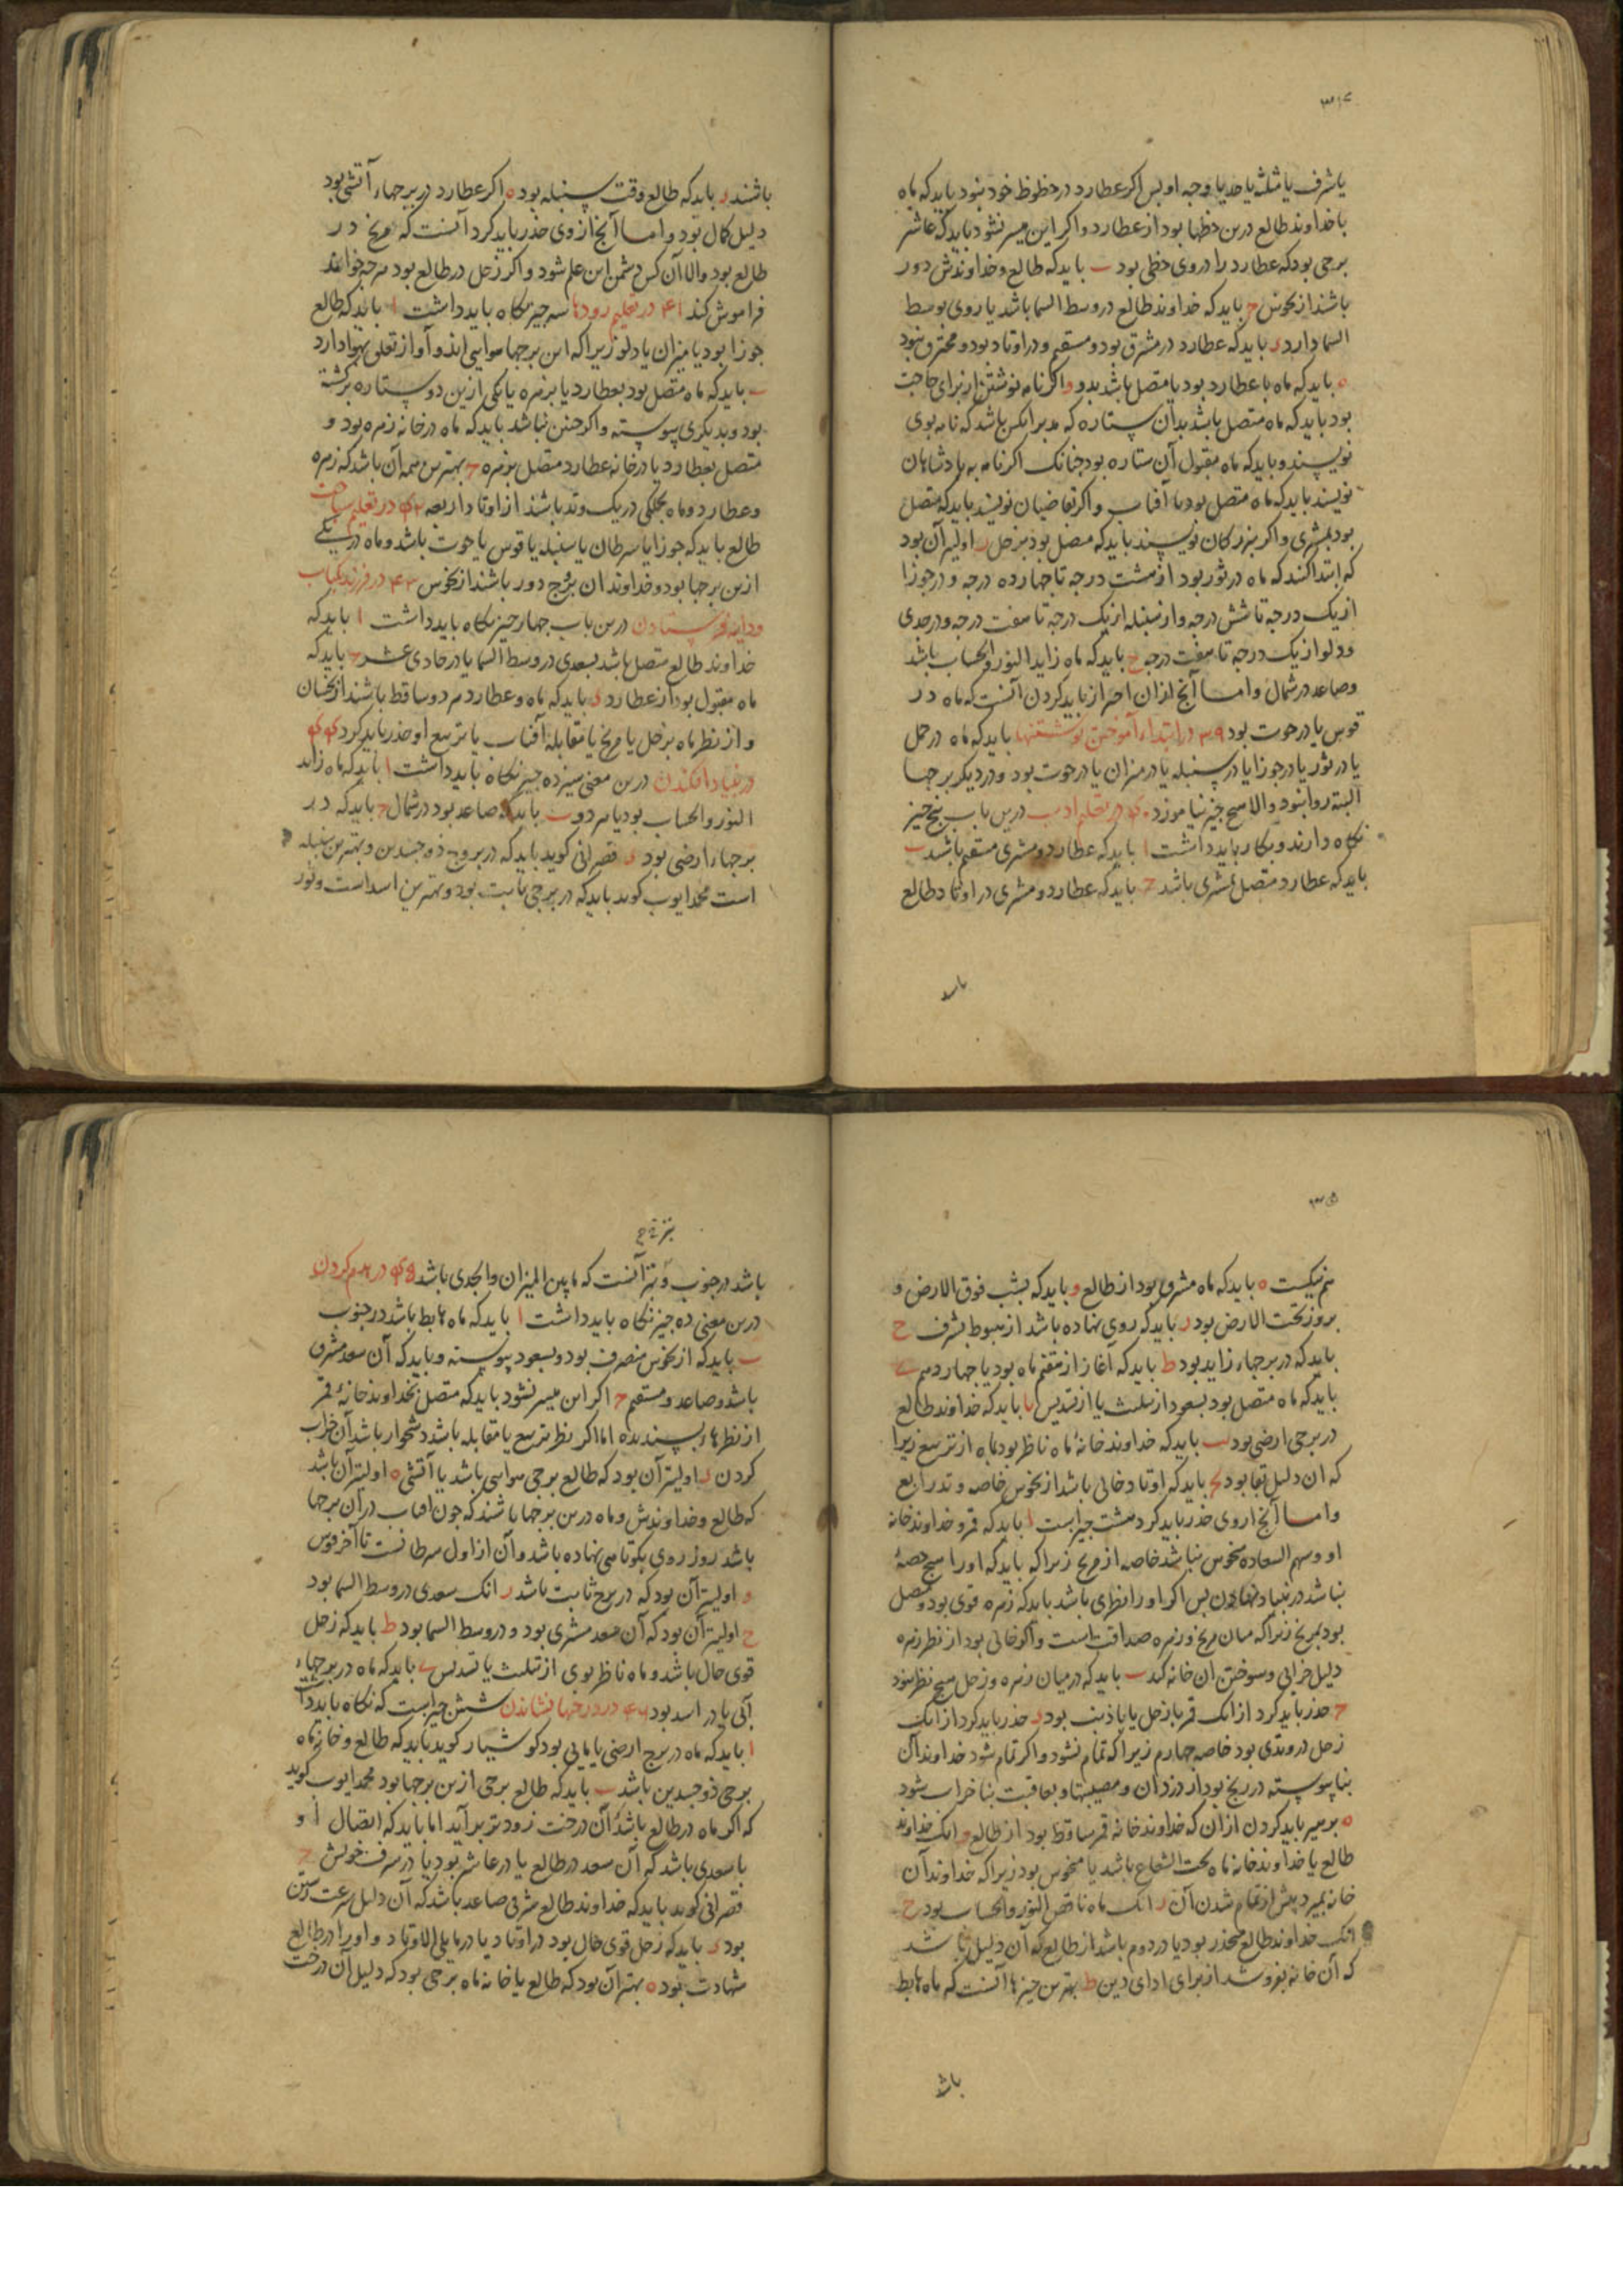 ۳۱۴
یا شرف یا مثلثه یا حد یا وجه او پس اگر عطارد در حظوظ خود نبود باید که ماه
با خداوند طالع درین حظها بود از عطارد و اگر این میسر نشود باید که عاشر
برجی بود که عطارد را در وی حظی بود ب باید که طالع و خداوندش دور
باشند از نحوس ج باید که خداوند طالع در وسط السما باشد یا روی بوسط
السما دارد د باید که عطارد در مشرق بود و مستقیم و در اوتاد بود و محترق نبود
ه باید که ماه با عطارد بود یا متصل باشد بدو و اگر نامه نوشتن از برای حاجت
بود باید که ماه متصل باشد بدان ستاره که مدبر آنکس باشد که نامه بوی
نویسند و باید که ماه مقبول آن ستاره بود چنانک اگر نامه به پادشاهان
نویسند باید که ماه متصل بود با آفتاب و اگر بقاضیان نویسند باید که متصل
بود بمشتری و اگر ببزرکان نویسند باید که متصل بود بزحل ز اولیتر آن بود
که ابتدا کنند که ماه در ثور بود از هشت درجه تا چهارده درجه و در جوزا
از یک درجه تا شش درجه و از سنبله از یک درجه تا هفت درجه و در جدی
و دلو از یک درجه تا هفت درجه ح باید که ماه زاید النور و الحساب باشد
و صاعد در شمال و اما آنج ازان احتراز باید کردن آنست که ماه در
قوس یا در حوت بود ۳۹ در ابتداء آموختن نوشتنها باید که ماه در حمل
یا در ثور یا در جوزا یا در سنبله یا در میزان یا در حوت بود و در دیکر برجها
البته روا نبود والا هیچ چیز نیاموزد ۴۰ در تعلیم ادب درین باب پنج چیز
نکاه دارند و بکار باید داشت ا باید که عطارد و مشتری مستقیم باشد ب
باید که عطارد متصل بمشتری باشد ج باید که عطارد و مشتری در اوتاد طالع
باشند
باشند د باید که طالع وقت سنبله بود ه اکر عطارد در برجهاء آتشی بود
دلیل کمال بود و اما آنج از وی حذر باید کرد آنست که مریخ در
طالع بود والا آن کس دشمن این علم شود و اکر زحل در طالع بود هرچه خواند
فراموش کند ۴۱ در تعلیم رودها سه چیز نکاه باید داشت ا باید که طالع
جوزا بود یا میزان یا دلو زیرا که این برجها هوایی اند و آواز تعلق بهوا دارد
ب باید که ماه متصل بود بعطارد یا بزهره یا یکی ازین دو ستاره برکشته
بود و بدیکری پیوسته و اکر چنین نباشد باید که ماه در خانه زهره بود و
متصل بعطارد یا در خانه عطارد متصل بزهره ج بهترین همه آن باشد که زهره
و عطارد و ماه بجملکی در یک وتد باشند از اوتاد اربعه ۴۲ در تعلیم سباحت
طالع باید که جوزا یا سرطان یا سنبله یا قوس یا حوت باشد و ماه در یکی
ازین برجها بود و خداوند ان برج دور باشند از نحوس ۴۳ در فرزند بکتاب
و دایه فرستادن درین باب چهار چیز نکاه باید داشت ا باید که
خداوند طالع متصل باشد بسعدی در وسط السما یا در حادی عشر ج باید که
ماه مقبول بود از عطارد د باید که ماه و عطارد هر دو ساقط باشند از نحسان
و از نظر ماه بزحل یا مریخ یا مقابله آفتاب یا تربیع او حذر باید کرد ۴۴
در بنیاد افکندن درین معنی سیزده چیز نکاه باید داشت ا باید که ماه زاید
النور و الحساب بود یا هر دو ب باید که صاعد بود در شمال ج باید که در
برجهاء ارضی بود د قصرانی کوید باید که در بروج ذو جسدین و بهترین سنبله
است محمد ایوب کوید باید که در برجی ثابت بود و بهترین اسد است و ثور
۳۱۵
هم نیکست ه باید که ماه مشرقی بود از طالع و باید که بشب فوق الارض و
بروز تحت الارض بود ز باید که روی نهاده باشد از هبوط بشرف ح
باید که در برجهاء زاید بود ط باید که آغاز از هفتم ماه بود یا چهاردهم ی
باید که ماه متصل بود بسعود از تثلیث یا از تسدیس یا باید که خداوند طالع
در برجی ارضی بود یب باید که خداوند خانه ماه ناظر بود بماه از تربیع زیرا
که ان دلیل بقا بود یج باید که اوتاد خالی باشد از نحوس خاصه وتد رابع
و اما آنج از وی حذر باید کرد هشت چیز است ا باید که قمر و خداوند خانه
او و سهم السعاده منحوس نباشد خاصه از مریخ زیرا که باید که او را هیچ حصه
نباشد در بنیاد نهادن پس اکر او را نظری باشد باید که زهره قوی بود و متصل
بود بمریخ زیرا که میان مریخ و زهره صداقت است و اکر خالی بود از نظر زهره
دلیل خرابی و سوختن ان خانه کند ب باید که در میان زهره و زحل هیچ نظر نبود
ج حذر باید کرد از انک قمر با زحل یا با ذنب بود د حذر باید کرد از انک
زحل در وتدی بود خاصه چهارم زیرا که تمام نشود و اکر تمام شود خداوند آن
بنا پیوسته در رنج بود از دزدان و مصیبتها و بعاقبت بنا خراب شود
ه پرهیز باید کردن ازان که خداوند خانه قمر ساقط بود از طالع و انک خداوند
طالع یا خداوند خانه ماه تحت الشعاع باشد یا منحوس بود زیرا که خداوند آن
خانه بمیرد پیش از تمام شدن آن ز انک ماه ناقص النور و الحساب بود ح
انک خداوند طالع منحدر بود یا در دوم باشد از طالع که آن دلیل باشد
که آن خانه بفروشد از برای ادای دین ط بهترین چیزها آنست که ماه هابط
باشد
باشد در جنوب و بتر آنست که ما بین المیزان و الجدی باشد ۴۵ در هدم کردن
درین معنی ده چیز نکاه باید داشت ا باید که ماه هابط باشد در جنوب
ب باید که از نحوس منصرف بود و بسعود پیوسته و باید که آن سعد مشرقی
باشد و صاعد و مستقیم ج اکر این میسر نشود باید که متصل بخداوند خانه قمر
از نظرهاء پسندیده اما اکر نظر تربیع یا مقابله باشد دشخوار باشد آن خراب
کردن د اولیتر آن بود که طالع برجی هوایی باشد یا آتشی ه اولیتر آن باشد
که طالع و خداوندش و ماه درین برجها باشند که چون افتاب در آن برجها
باشد روز روی بکوتاهی نهاده باشد و آن از اول سرطانست تا آخر قوس
و اولیتر آن بود که در برج ثابت باشد ز انک سعدی در وسط السما بود
ح اولیتر آن بود که آن سعد مشتری بود و در وسط السما بود ط باید که زحل
قوی حال باشد و ماه ناظر بوی از تثلیث یا تسدیس ی باید که ماه در برجهاء
آبی یا در اسد بود ۴۶ در درختها نشاندن شش چیز است که نکاه باید داشت
ا باید که ماه در برج ارضی یا مایی بود کوشیار کوید باید که طالع و خانه ماه
برجی ذو جسدین باشد ب باید که طالع برجی ازین برجها بود محمد ایوب کوید
که اکر ماه در طالع باشد آن درخت زودتر برآید اما باید که اتصال او
با سعدی باشد که آن سعد در طالع یا در عاشر بود یا در شرف خویش ج
قصرانی کوید باید که خداوند طالع شرقی صاعد باشد که آن دلیل سرعت رستن
بود د باید که زحل قوی حال بود در اوتاد یا در مایلی الاوتاد و او را در طالع
شهادت بود ه بهتر آن بود که طالع یا خانه ماه برجی بود که دلیل آن درخت